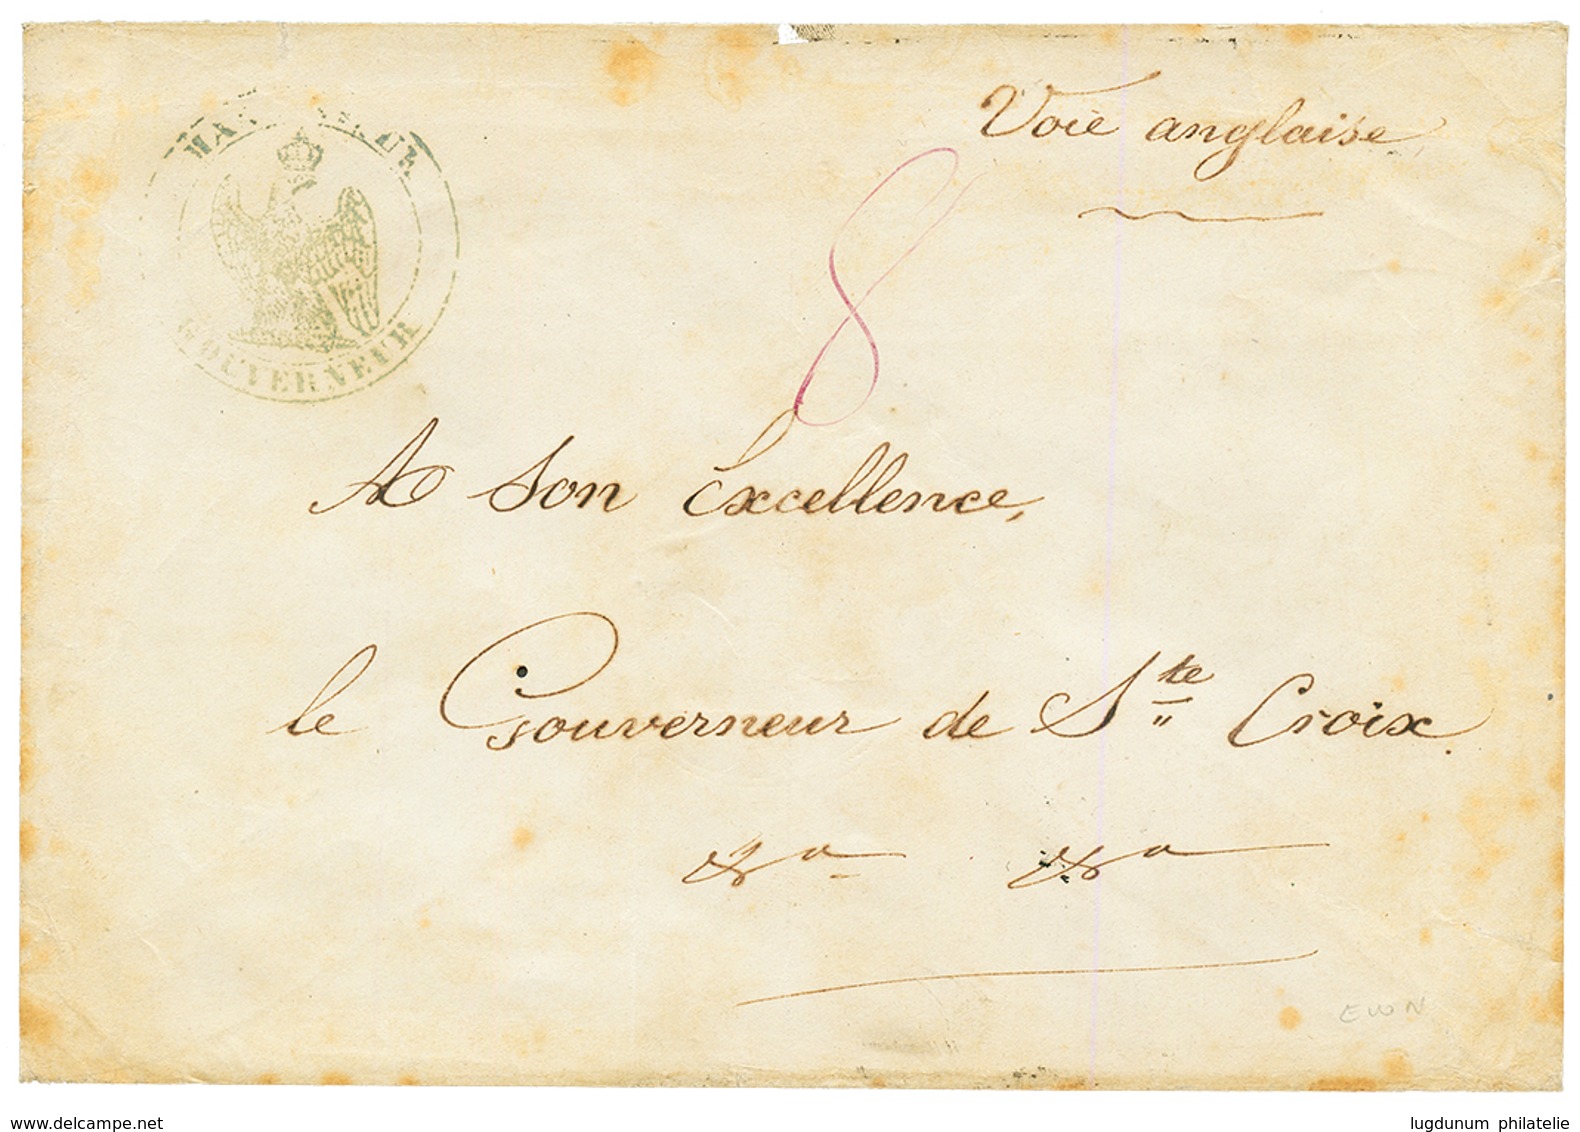 Voie anglaise
8
GOUVERNEUR
A Son Excellence,
le Gouverneur de Ste Croix.
&a &a
EWN
www.delcampe.net
lugdunum philatelie